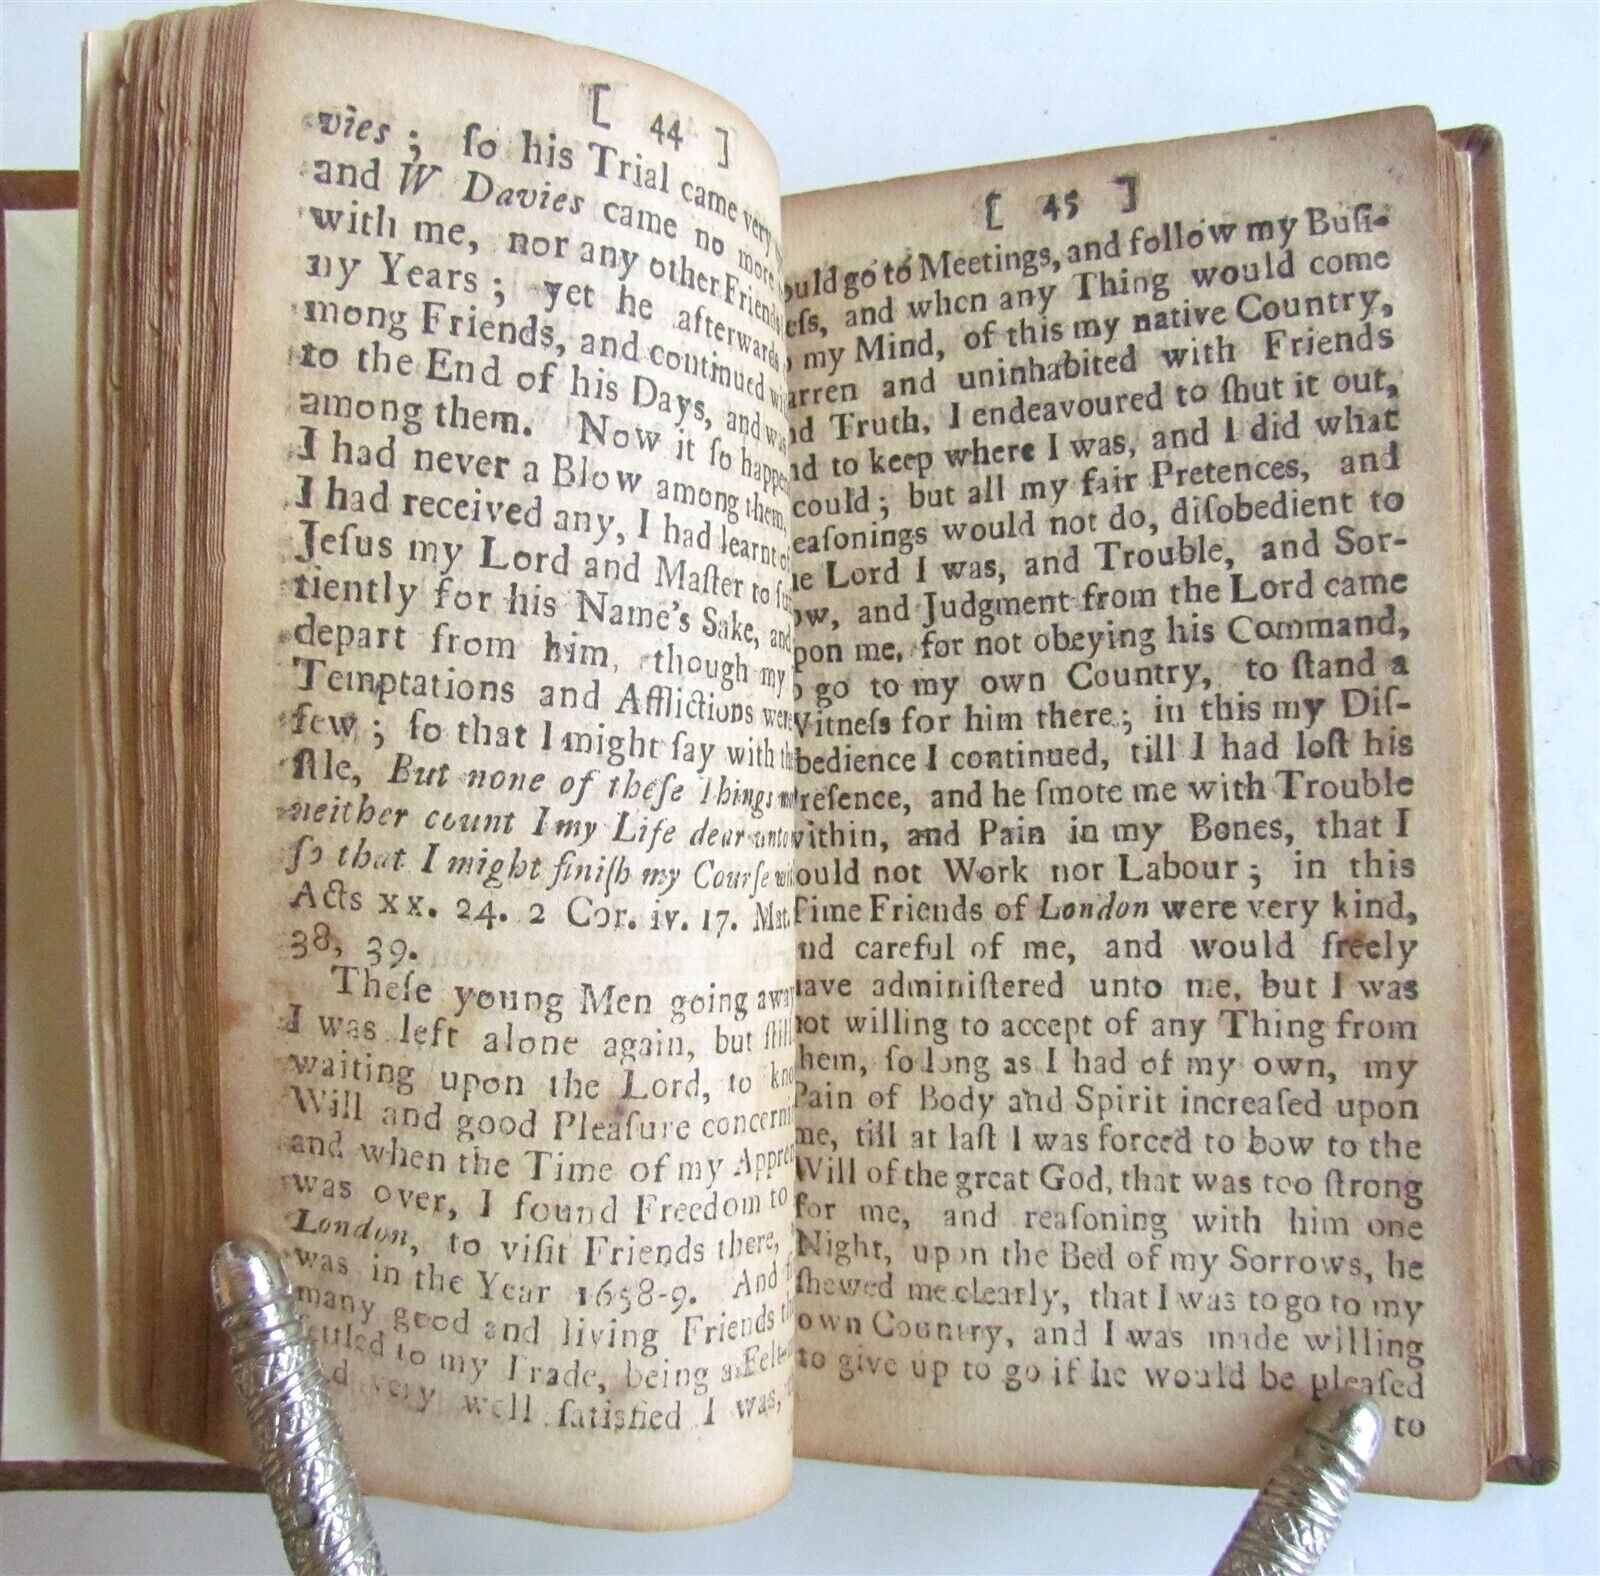 [ 44 ]
vies ; ſo his Trial came very
and W Davies came no more
with me, nor any other Friends
ny Years ; yet he afterwards
mong Friends, and continued
to the End of his Days, and was
among them. Now it ſo happe
I had never a Blow among them,
I had received any, I had learnt of
Jeſus my Lord and Maſter to ſu
tiently for his Name's Sake, and
depart from him, though my
Temptations and Afflictions were
few ; ſo that I might ſay with
ſtle, But none of theſe Things
neither count I my Life dear unto
ſo that I might finiſh my Courſe
Acts xx. 24. 2 Cor. iv. 17. Mat.
38, 39.
Theſe young Men going away
I was left alone again, but ſtill
waiting upon the Lord, to kno
Will and good Pleaſure concerni
and when the Time of my Appren
was over, I found Freedom to
London, to viſit Friends there,
was in the Year 1658-9. And
many good and living Friends
ſettled to my Trade, being a Felt-
very well ſatisfied I was,
[ 45 ]
ould go to Meetings, and follow my Buſi-
eſs, and when any Thing would come
my Mind, of this my native Country,
arren and uninhabited with Friends
nd Truth, I endeavoured to ſhut it out,
nd to keep where I was, and I did what
could ; but all my fair Pretences, and
eaſonings would not do, diſobedient to
he Lord I was, and Trouble, and Sor-
ow, and Judgment from the Lord came
pon me, for not obeying his Command,
o go to my own Country, to ſtand a
Witneſs for him there ; in this my Diſ-
bedience I continued, till I had loſt his
reſence, and he ſmote me with Trouble
within, and Pain in my Bones, that I
ould not Work nor Labour ; in this
Time Friends of London were very kind,
nd careful of me, and would freely
have adminiſtered unto me, but I was
not willing to accept of any Thing from
them, ſo long as I had of my own, my
Pain of Body and Spirit increaſed upon
me, till at laſt I was forced to bow to the
Will of the great God, that was too ſtrong
for me, and reaſoning with him one
Night, upon the Bed of my Sorrows, he
ſhewed me clearly, that I was to go to my
own Country, and I was made willing
to give up to go if he would be pleaſed
to